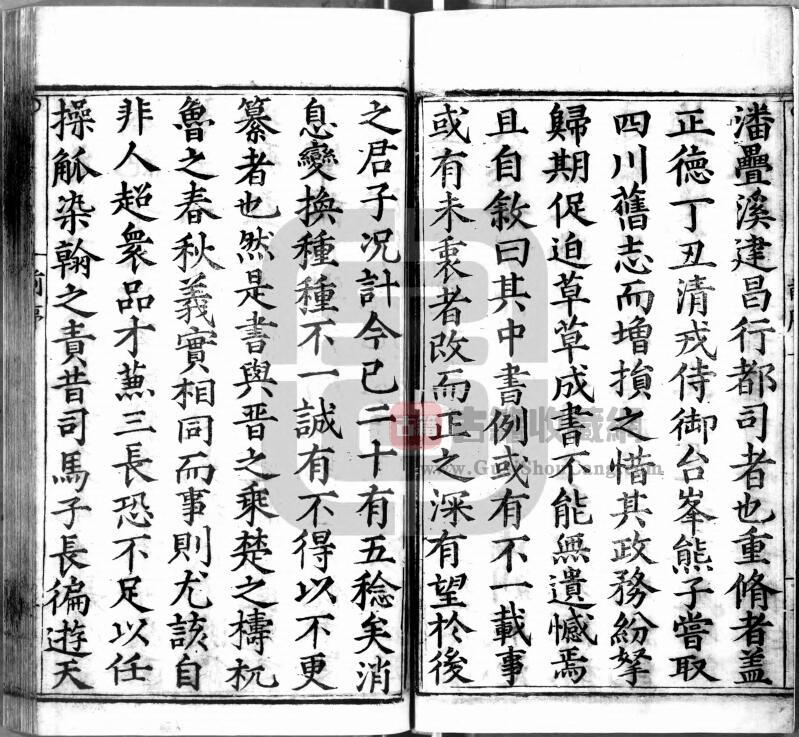 潘疊溪建昌行都司者也重脩者盖
正德丁丑清戎侍御台峯熊子嘗取
四川舊志而增損之惜其政務紛拏
歸期促迫草草成書不能無遺憾焉
且自敘曰其中書例或有不一載事
或有未衷者改而正之深有望於後
之君子况計今已二十有五稔矣消
息變換種種不一誠有不得以不更
纂者也然是書與晋之乘楚之檮杌
魯之春秋義實相同而事則尤該自
非人超衆品才蒹三長恐不足以任
操觚染翰之責昔司馬子長徧遊天
古籍
古籍收藏網